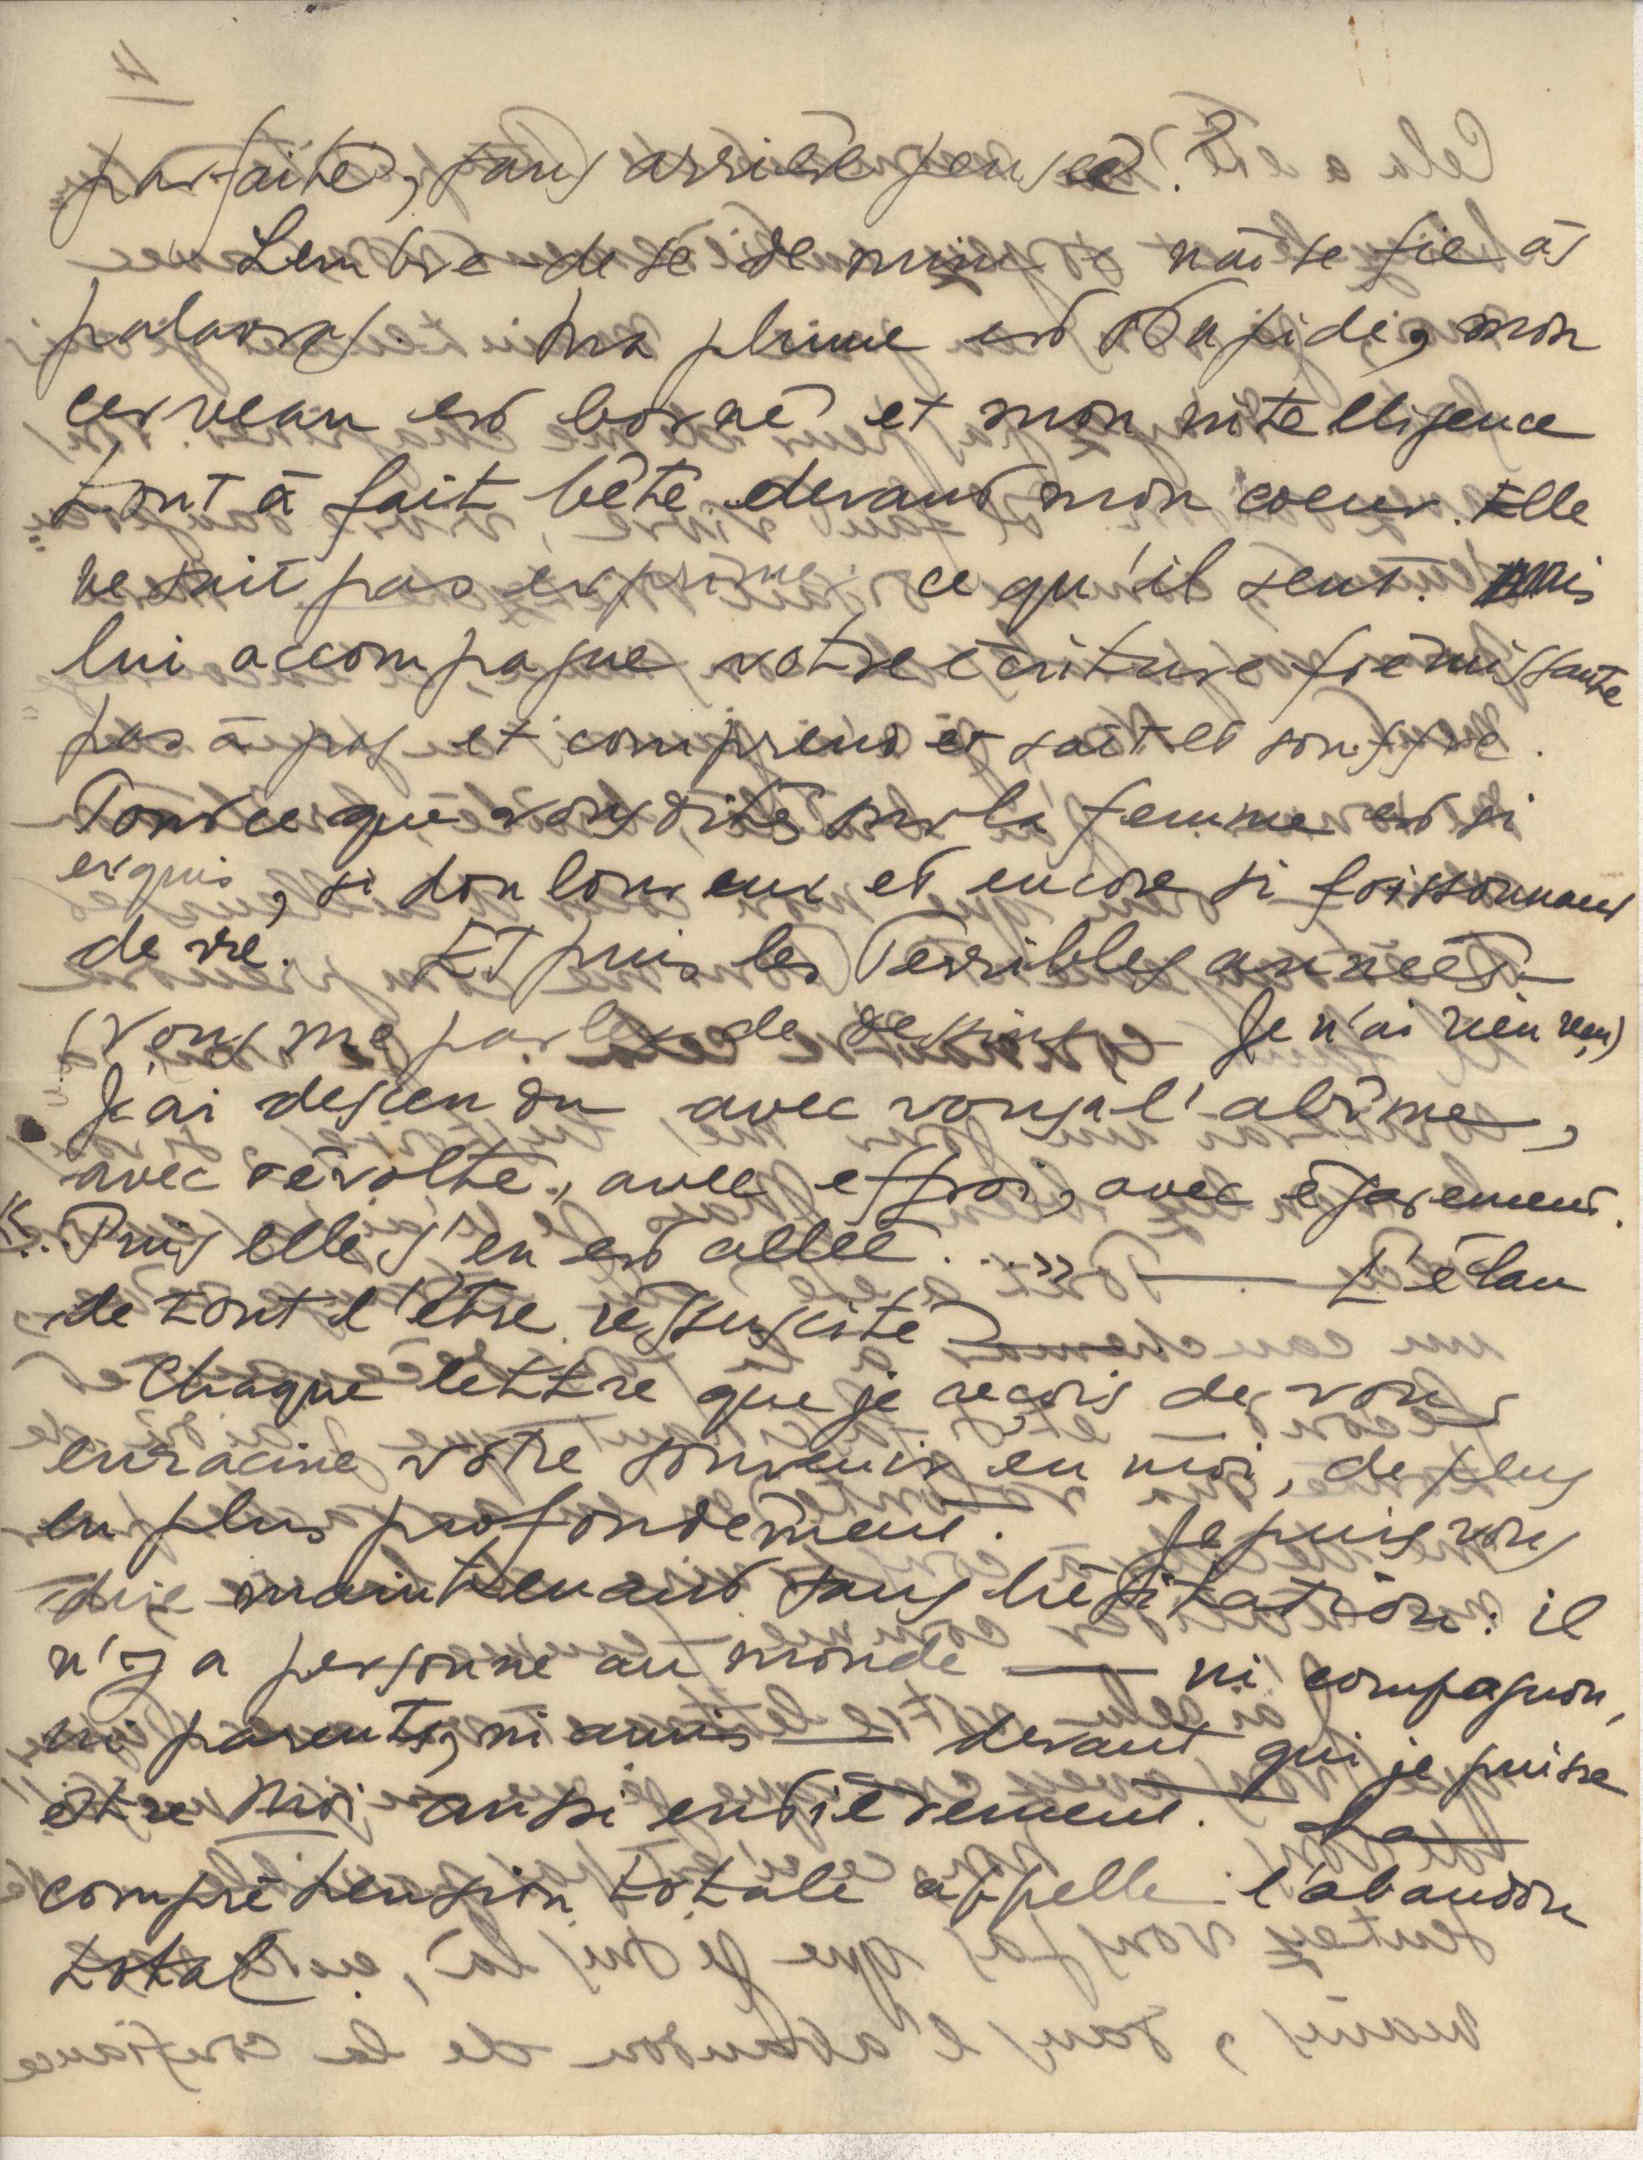 parfaite, sans arrière pensée?
Lembre-de se de mim e não se fie às
palavras. Ma plume est stupide, mon
cerveau est borné et mon intelligence
tout à fait bête devant mon coeur. Elle
ne sait pas exprimer ce qu'il sent. Mais
lui accompagne votre écriture frémissante
pas à pas et comprend et sait et souffre.
Tout ce que vous dites sur la femme est si
exquis, si douloureux et encore si foissonnant
de vie. Et puis les Terribles années —
(Vous me parlez de dessins — Je n'ai rien reçu)
J'ai descendu avec vous à l'abîme,
avec révolte, avec effroi, avec égarement.
"... Puis elle s'en est allée...." — L'élan
de tout l'être ressuscité —
Chaque lettre que je reçois de vous
enracine votre souvenir en moi, de plus
en plus profondément. Je puis vous
dire maintenant sans hésitation: il
n'y a personne au monde — ni compagnon,
ni parents, ni amis — devant qui je puisse
être moi aussi entièrement. La
compréhension totale appelle l'abandon
total.